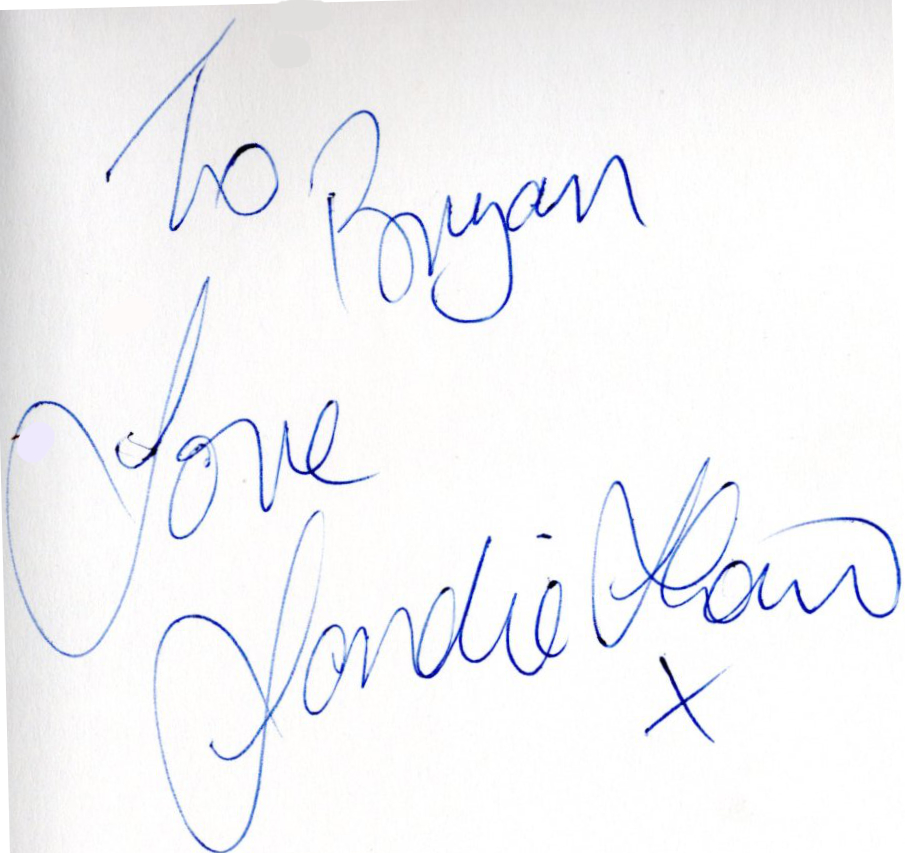 To Bryan
Love
Sandie Shaw
x